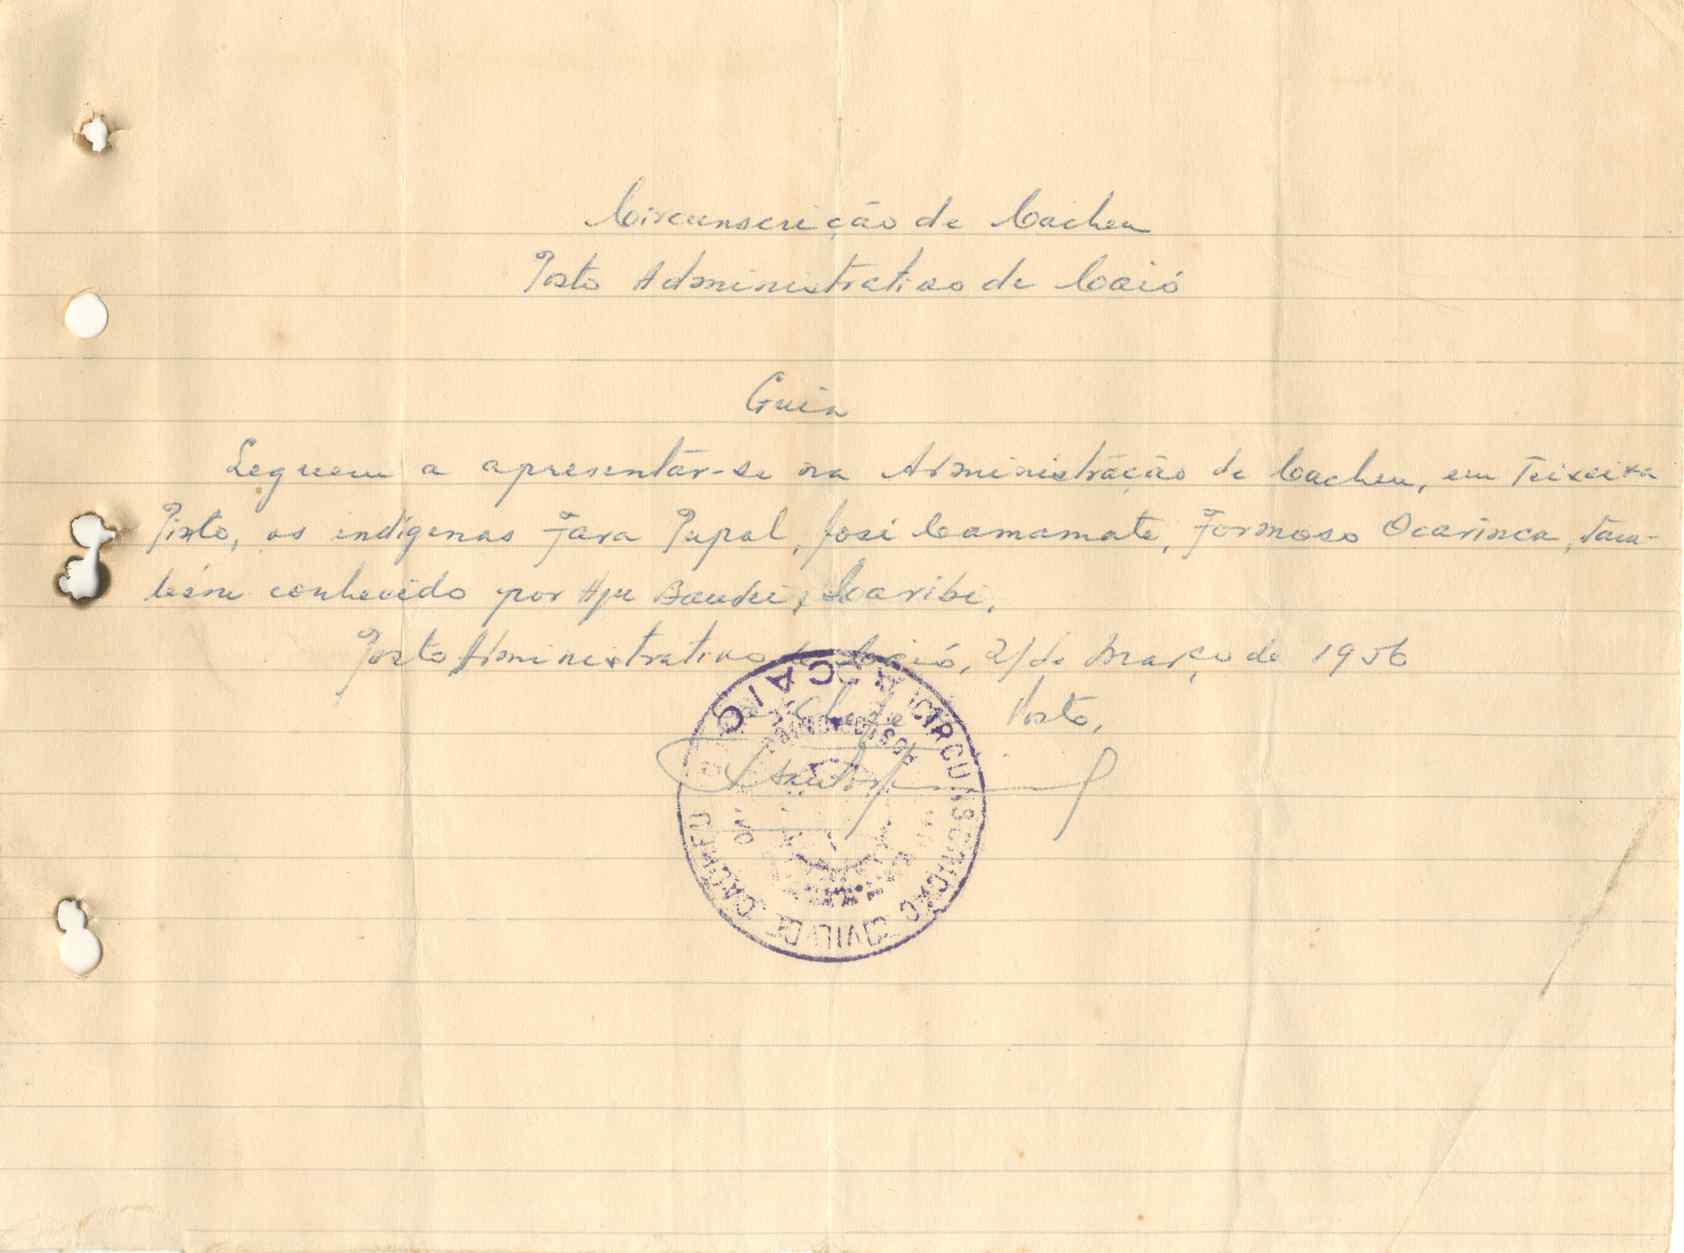 Circunscrição de Cacheu
Posto Administrativo de Caió
Guia
Seguem a apresentár-se na Administração de Cacheu, em Teixeira
Pinto, os indígenas Jara Papal, José Camamate, Formoso Ocarinca, tam-
bém conhecido por Aju Baudei, Caribi.
Posto Administrativo de Caió, 21 de Março de 1956
O Chefe de Posto,
CIRCUNSCRIÇÃO CIVIL DE CACHEU
CAIO